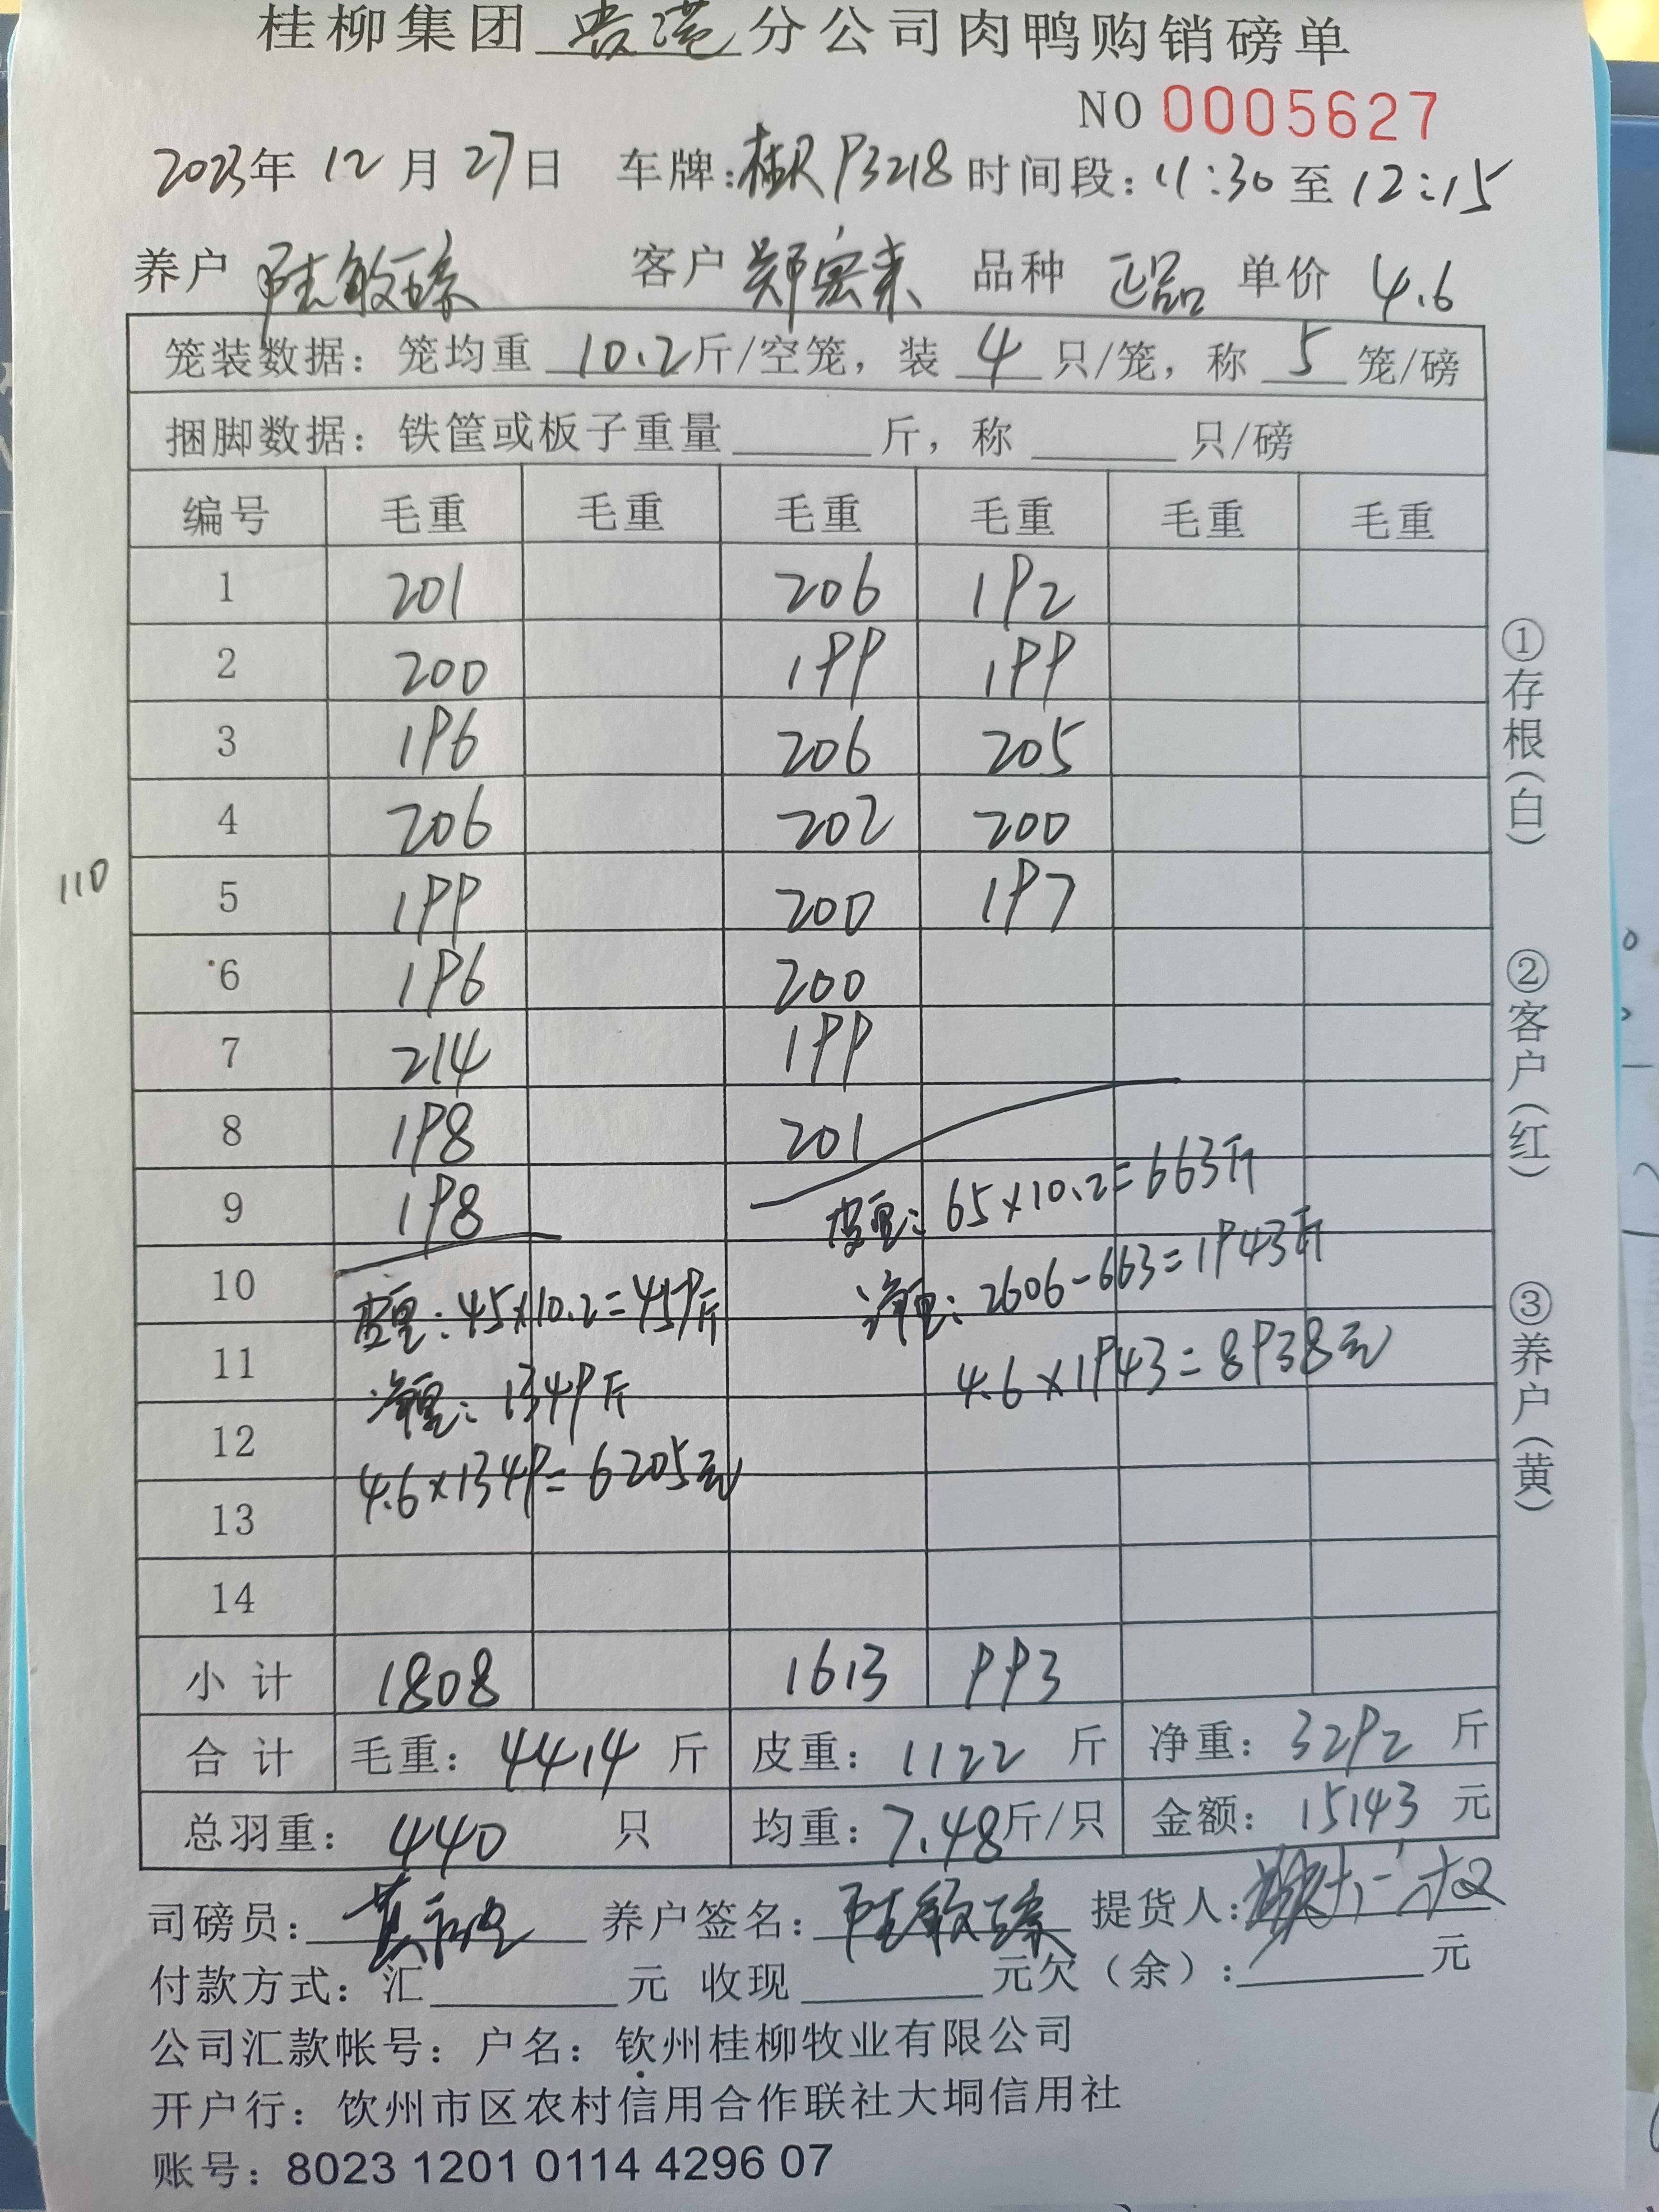 桂柳集团 贵港 分公司肉鸭购销磅单
NO 0005627
2023年 12月 27日 车牌:桂R P3218 时间段: 11:30 至 12:15
养户 陆敏臻 客户 郑宏来 品种 正品 单价 4.6
笼装数据: 笼均重 10.2 斤/空笼, 装 4 只/笼, 称 5 笼/磅
捆脚数据: 铁筐或板子重量 斤, 称 只/磅
编号 毛重 毛重 毛重 毛重 毛重 毛重
1 201 206 192
2 200 199 199
3 196 206 205
4 206 202 200
110
5 199 200 197
6 196 200
7 214 199
8 198 201
9 198
皮重: 65×10.2=663斤
10
皮重: 45×10.2=459斤
净重: 2606-663=1943斤
11
净重: 1349斤
4.6×1943=8938元
12
4.6×1349=6205元
13
14
小计 1808 1613 993
合计 毛重: 4414 斤 皮重: 1122 斤 净重: 3292 斤
总羽重: 440 只 均重: 7.48 斤/只 金额: 15143 元
①存根(白)
②客户(红)
③养户(黄)
司磅员: 养户签名: 陆敏臻 提货人:
付款方式: 汇 元 收现 元欠(余): 元
公司汇款帐号: 户名: 钦州桂柳牧业有限公司
开户行: 饮州市区农村信用合作联社大垌信用社
账号: 8023 1201 0114 4296 07